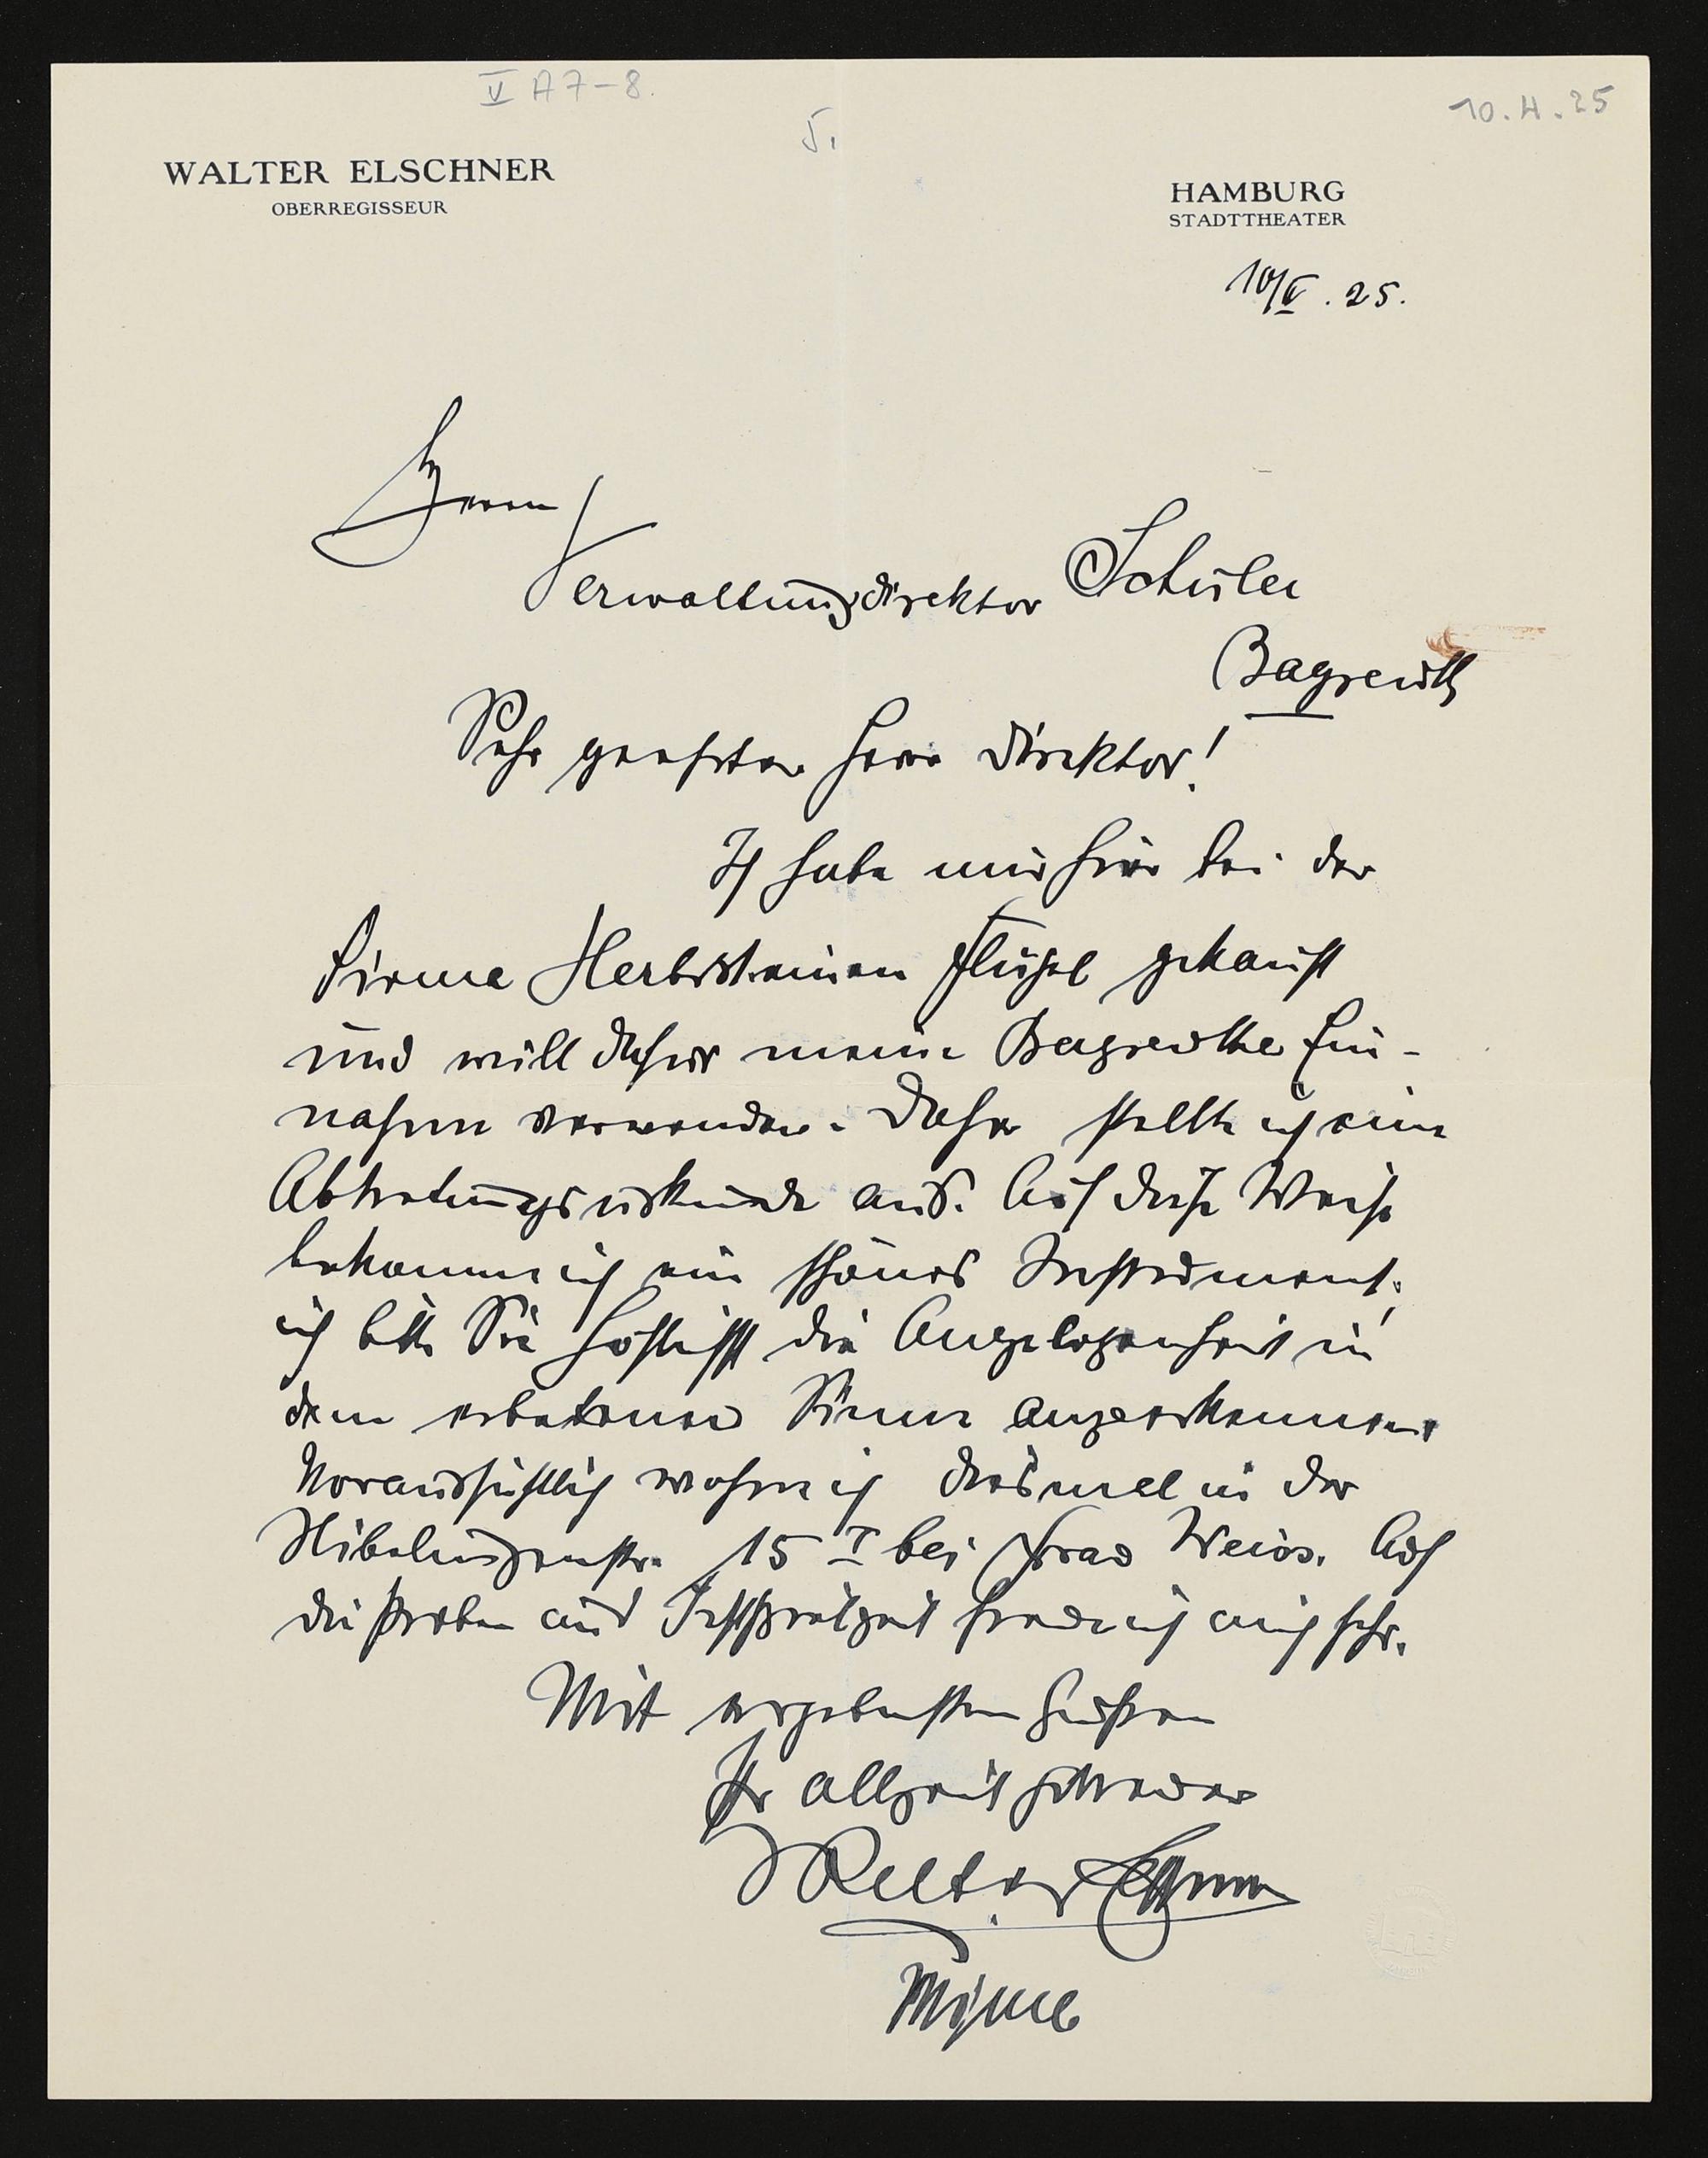 V A 7-8.
5.
10.4.25
WALTER ELSCHNER
OBERREGISSEUR
HAMBURG
STADTTHEATER
10/V. 25.
Herrn
Verwaltungsdirektor Schuler
Bayreuth
Sehr geehrter Herr Direktor!
Ich habe mir hier bei der
Firma Herbst einen Flügel gekauft
und will dafür meine Bayreuther Ein-
nahme verwenden. Daher stellte ich eine
Abtretungsurkunde aus. Auf diese Weise
bekomme ich ein schönes Instrument.
ich bitte Sie höflichst die Angelegenheit in
dem erbetenen Sinne anzuerkennen.
Voraussichtlich wohne ich diesmal in der
Nibelungenstr. 15 I bei Frau Weiss. Auf
die Proben und Festspielzeit freue ich mich sehr.
Mit ergebensten Grüßen
Ihr allzeit getreuer
Walter Elschner
Mime